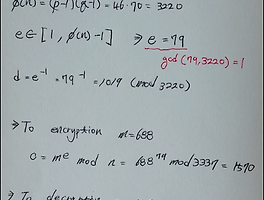 φ(n) = (p-1)(q-1) = 46·70 = 3220
e ∈ [1, φ(n)-1] ⇒ e = 79
gcd(79,3220) = 1
d = e⁻¹ = 79⁻¹ = 1019 (mod 3220)
⇒ To encryption m=688
c = mᵉ mod n = 688⁷⁹ mod 3337 = 1570
⇒ To decryption